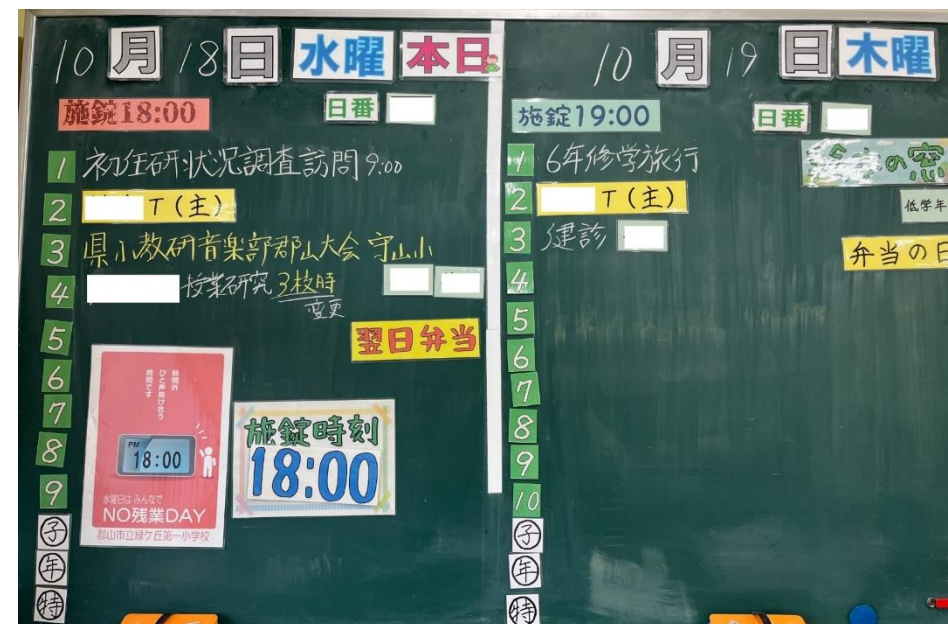 10月18日 水曜 本日
施錠18:00 日番
1 初任研状況調査訪問 9:00
2 T(主)
3 県小教研音楽部郡山大会 守山小
4 授業研究 3校時
変更
5
翌日弁当
6
7
8
9
子
年
特
時間外
ひと声掛け合う
時間です
PM
18:00
水曜日は みんなで
NO残業DAY
郡山市立緑ケ丘第一小学校
施錠時刻
18:00
10月19日 木曜
施錠19:00 日番
1 6年修学旅行
の窓
2 T(主)
低学年
3 健診
弁当の日
4
5
6
7
8
9
10
子
年
特